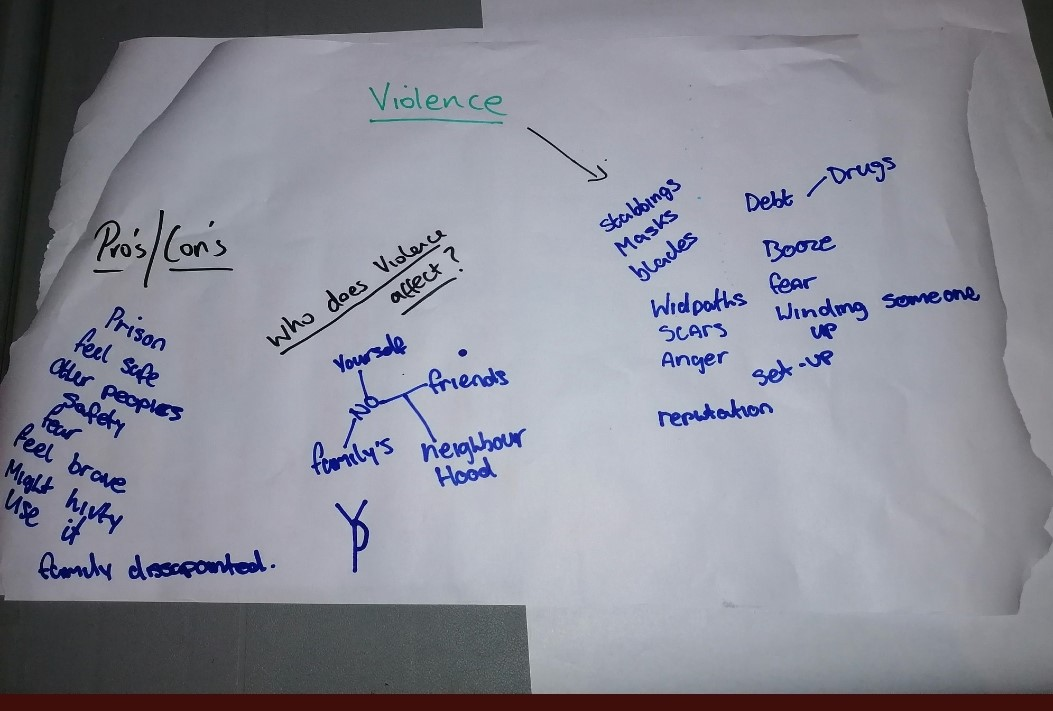 Violence
Pro's/Con's
Prison
feel safe
Other peoples
safety
fear
feel brave
Might
Use it
family dissapointed.
Who does Violence
affect?
Yourself
friends
NO
family's
neighbour
Hood
YP
Stabbings
Masks
blades
Widpaths
SCARS
Anger
reputation
Debt
Drugs
Booze
fear
Winding someone
UP
set-up